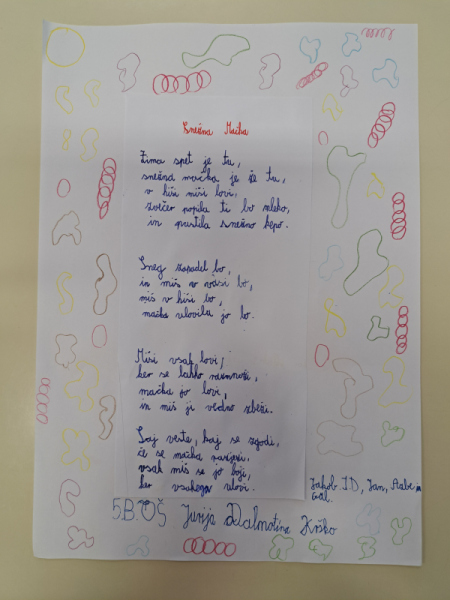 Snežna Mačka
Zima spet je tu,
snežna mačka je že tu,
v hiši miši lovi,
zvečer popila ti bo mleko,
in pustila snežno kepo.
Sneg zapadel bo,
in miš v vasi bo,
miš v hiši bo,
mačka ulovila jo bo.
Miši vsak lovi,
ker se lahko razmnoži,
mačka jo lovi,
in miš ji vedno zbeži.
Saj veste, kaj se zgodi,
če se mačka razjezi,
vsak miš se jo boji,
ker vsakega ulovi.
Jakob ID, Jan,
Gal.
5.B OŠ Jurija Dalmatina Krško